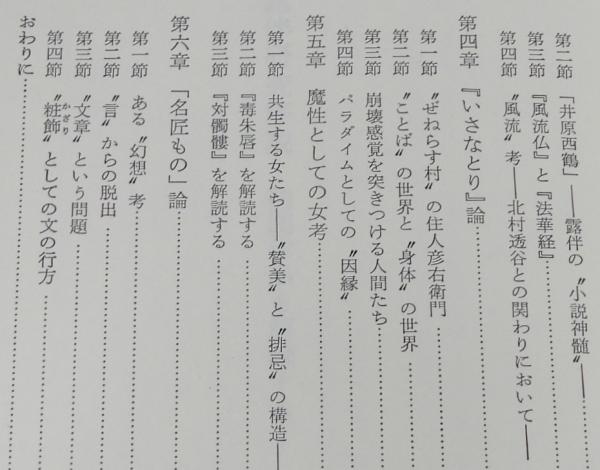 第二節　「井原西鶴」――露伴の〝小説神髄〟――………
第三節　『風流仏』と『法華経』………
第四節　〝風流〟考――北村透谷との関わりにおいて――
第四章　『いさなとり』論………
第一節　〝ぜねらす村〟の住人彦右衛門………
第二節　〝ことば〟の世界と〝身体〟の世界………
第三節　崩壊感覚を突きつける人間たち………
第四節　パラダイムとしての〝因縁〟………
第五章　魔性としての女考………
第一節　共生する女たち――〝賛美〟と〝排忌〟の構造―
第二節　『毒朱唇』を解読する………
第三節　『対髑髏』を解読する………
第六章　「名匠もの」論………
第一節　ある〝幻想〟考………
第二節　〝言〟からの脱出………
第三節　〝文章〟という問題………
第四節　〝粧飾〟としての文の行方………
かざり
おわりに………